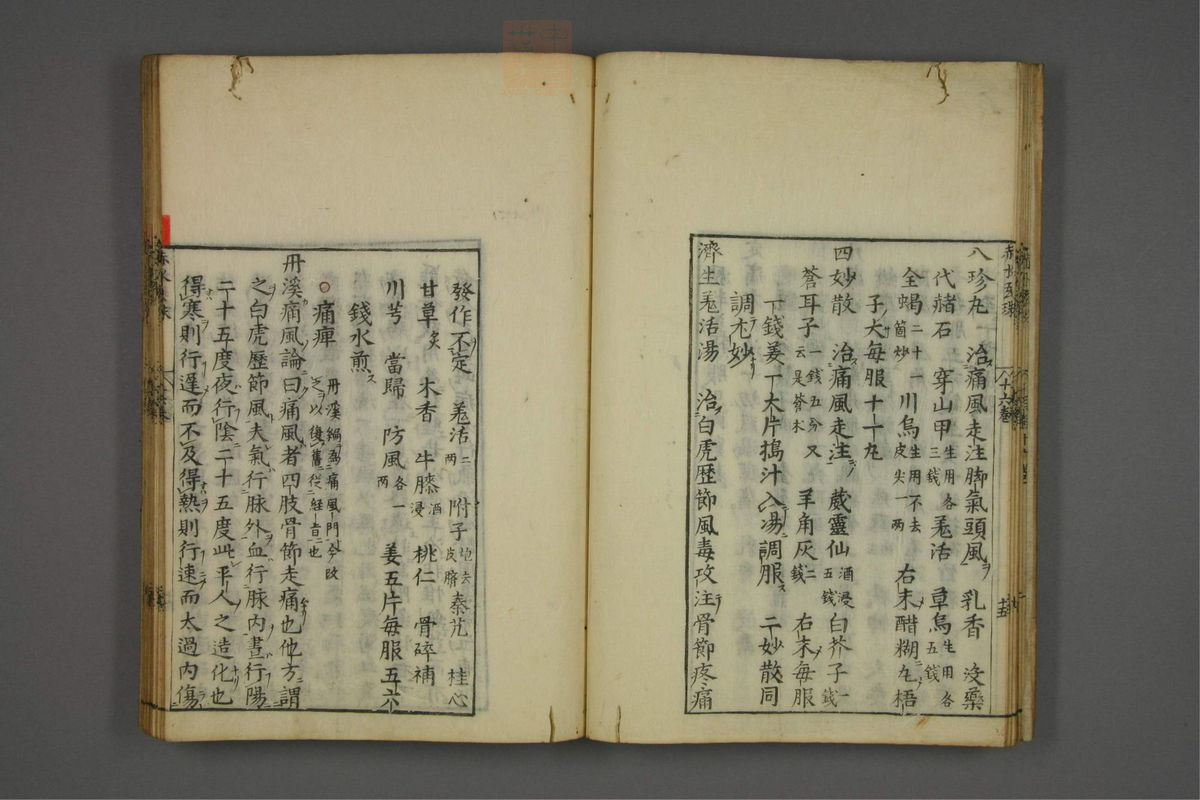 八珍丸 治痛風走注脚氣頭風 乳香 没藥
代赭石 穿山甲生用各三錢 羌活 草烏生用各五錢
全蝎二十一箇炒 川烏生用不去皮尖一兩 右末醋糊丸梧
子大每服十一丸
四妙散 治痛風走注 葳靈仙酒浸五錢 白芥子一錢
蒼耳子一錢五分又云是蒼朮 羊角灰二錢 右末每服
丁錢姜一大片搗汁入湯調服 二妙散同
調尤妙
濟生羗活湯 治白虎歷節風毒攻注骨節疼痛
發作不定 羗活二兩 附子炮去皮臍 秦艽 桂心
甘草炙 木香 牛膝酒浸 桃仁 骨碎補
川芎 當歸 防風各一兩 姜五片每服五六
錢水煎
○痛痺
丹溪痛風論曰痛風者四肢骨節走痛也他方謂
之白虎歷節風夫氣行脉外血行脉内晝行陽
二十五度夜行陰二十五度此平人之造化也
得寒則行遲而不及得熱則行速而太過内傷